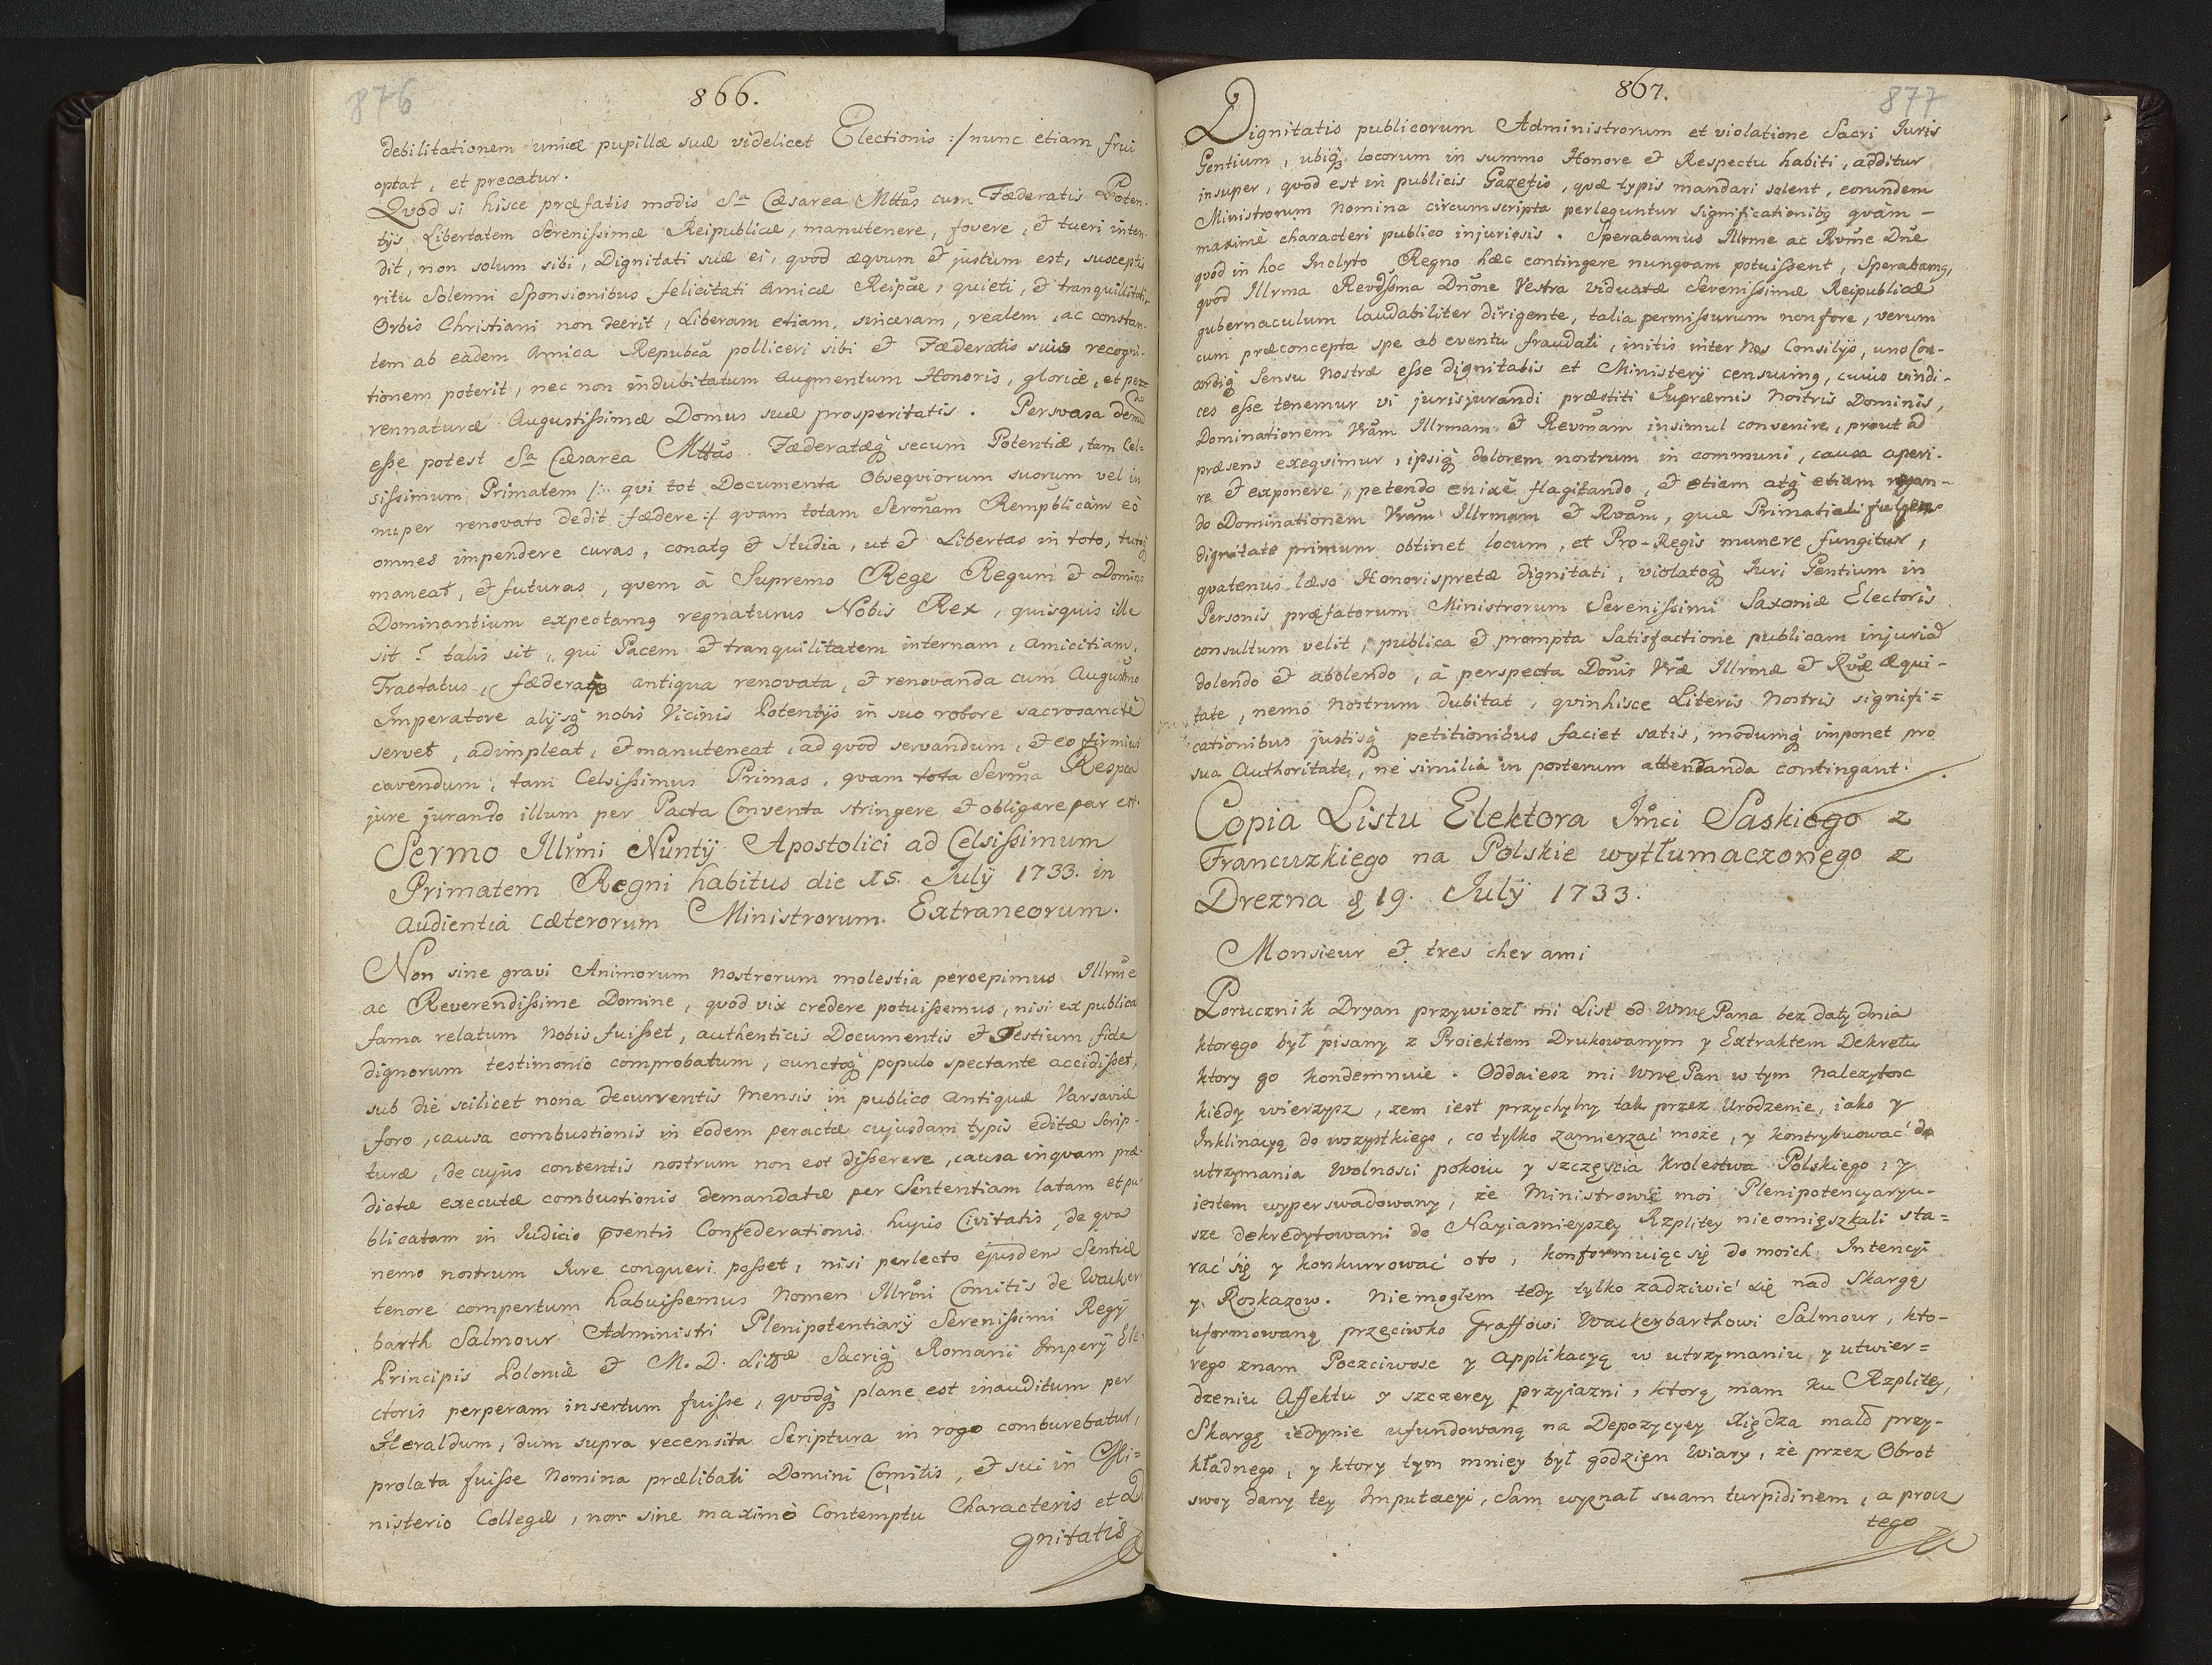 876
866.
debilitationem unicæ pupillæ suæ videlicet Electionis :/ nunc etiam frui
optat, et precatur.
Qvod si hisce præfatis modis Sa Cæsarea Mttas cum Fæderatis Poten-
tijs Libertatem Serenissimæ Reipublicæ, manutenere, fovere, et tueri inten-
dit, non solum sibi, Dignitati suæ ei, qvod æqvum et justum est, suscepti
ritu Solenni Sponsionibus felicitati amicæ Reipae, quieti, et tranquillitati
Orbis Christiani non deerit, Liberam etiam, sinceram, realem, ac constan-
tem ab eadem amica Repubca polliceri sibi et Fæderatis suis recogni-
tionem poterit, nec non indubitatum augmentum Honoris, gloriæ, et pe-
rennaturæ Augustissimæ Domus suæ prosperitatis. Persvasa demu
esse potest Sa Cæsarea Mttas. Fæderatæq secum Potentiæ, tam Cel-
sissimum Primatem /: qvi tot Documenta Obseqviorum suorum vel in
nuper renovato dedit fædere :/ qvam totam Serenam Rempblicam eò
omnes impendere curas, conatq et studia, ut et Libertas in toto, tutaq
maneat, et futuras, qvem à Supremo Rege Regum et Domino
Dominantium expectamq regnaturus Nobis Rex, quisquis ille
sit ? talis sit, qui Pacem et tranquilitatem internam, amicitiam,
Tractatus, fæderaq antiqua renovata, et renovanda cum Augustmo
Imperatore alijsq nobis Vicinis Potentijs in suo robore sacrosanctè
servet, adimpleat, et manuteneat, ad qvod servandum, et eo firmius
cavendum, tam Celsissimus Primas, qvam tota Serma Respca
jure jurando illum per Pacta Conventa stringere et obligare par est.
Sermo Illrmi Nuntij Apostolici ad Celsissimum
Primatem Regni habitus die 15. July 1733. in
audientia cæterorum Ministrorum Extraneorum.
Non sine gravi Animorum nostrorum molestia percepimus Illrme
ac Reverendissime Domine, qvod vix credere potuissemus, nisi ex publica
fama relatum nobis fuisset, authenticis Documentis et Testium fide
dignorum testimonio comprobatum, cunctoq populo spectante accidisset,
sub die scilicet nona decurrentis mensis in publico antiquæ Varsaviæ
foro, causa combustionis in eodem peractæ cujusdam typis editæ scrip-
turæ, de cujus contentis nostrum non est disserere, causa inqvam præ-
dictæ executæ combustionis demandatæ per Sententiam latam et pu
blicatam in Judicio præsentis Confederationis hujus Civitatis, de qva
nemo nostrum Jure conqueri posset, nisi perlecto ejusdem Sentiæ
tenore compertum habuissemus Nomen Illrmi Comitis de Wacker
barth Salmour Administri Plenipotentiarij Serenissimi Regij
Principis Poloniæ et M. D. Littæ Sacriq Romani Imperij Ele-
ctoris perperam insertum fuisse, qvodq plane est inauditum per
Heraldum, dum supra recensita Scriptura in rogo comburebatur,
prolata fuisse nomina prælibati Domini Comitis, et sui in Mi-
nisterio Collegæ, non sine maximo Contemptu Characteris et Di
gnitatis
877
867.
Dignitatis publicorum Administrorum et violatione Sacri Juris
Gentium, ubiq locorum in summo Honore et Respectu habiti, additur
insuper, qvod est in publicis Gazetis, qvæ typis mandari solent, eorundem
Ministrorum nomina circumscripta perleguntur significationibq qvam-
maximè characteri publico injuriosis. Sperabamus Illrme ac Rvme Dne
qvod in hoc Inclyto Regno hæc contingere nunqvam potuissent, Sperabamq,
qvod Illrma Revdssma Dnone Vestra viduatæ Serenissimæ Reipublicæ
gubernaculum laudabiliter dirigente, talia permissurum non fore, verum
cum præconcepta spe ab eventu fraudati, initis inter Nos Consilijs, uno Con-
cordiq Sensu nostræ esse dignitatis et Ministerij censuimq, cuius vindi-
ces esse tenemur vi jurisjurandi præstiti Supræmis Nostris Dominis,
Dominationem Vram Illrmam et Revmam insimul convenire, prout ad
præsens exeqvimur, ipsiq dolorem nostrum in communi, causa aperi-
re et exponere, petendo enixè flagitando, et etiam atq etiam rogan-
do Dominationem Vram Illrmam et Rvam, quæ Primatiali fulgens
dignitate primum obtinet locum, et Pro-Regis munere fungitur,
qvatenus læso Honori spretæ dignitati, violatoq Juri Gentium in
Personis præfatorum Ministrorum Serenissimi Saxoniæ Electoris
consultum velit, publica et prompta Satisfactione publicam injuriam
dolendo et abolendo, à perspecta Donis Vræ Illrmæ et Rvæ Æqui-
tate, nemo nostrum dubitat, qvin hisce Literis Nostris signifi=
cationibus justisq petitionibus faciet satis, modumq imponet pro
sua Authoritate, ne similia in posterum attendanda contingant.
Copia Listu Elektora Jmci Saskiego z
Francuzkiego na Polskie wytłumaczonego z
Drezna d 19. July 1733.
Monsieur et tres cher ami
Porucznik Dryan przywiozł mi List od Wmę Pana bez daty dnia
ktorego był pisany z Proiektem Drukowanym y Extraktem Dekretu
ktory go kondemnuie. Oddaiesz mi Wmę Pan w tym nalezytosc
kiedy wierzysz, zem iest przychylny tak przez Urodzenie, iako y
Inklinacyą do wszystkiego, co tylko zamierzać może, y kontrybuować do
utrzymania Wolnosci pokoiu y szczęscia Krolestwa Polskiego, y
iestem wyperswadowany, że Ministrowie moi Plenipotencyaryu-
sze dekredytowani do Nayiasnieyszey Rzplitey nieomięszkali sta=
rać się y konkurrować oto, konformuiąc się do moich Intencyi
y Roskazow. Niemogłem tedy tylko zadziwić się nad Skargą
uformowaną przeciwko Graffowi Wackerbarthowi Salmour, kto-
rego znam Poczciwosc y applikacyą w utrzymaniu y utwier=
dzeniu Affektu y szczerey przyiazni, ktorą mam ku Rzplitey,
Skargę iedynie ufundowaną na Depozycyey Xiędza mało przy-
kładnego, y ktory tym mniey był godzien Wiary, że przez Obrot
swoy dany tey Imputacyi, Sam wyznał suam turpidinem, a procz
tego